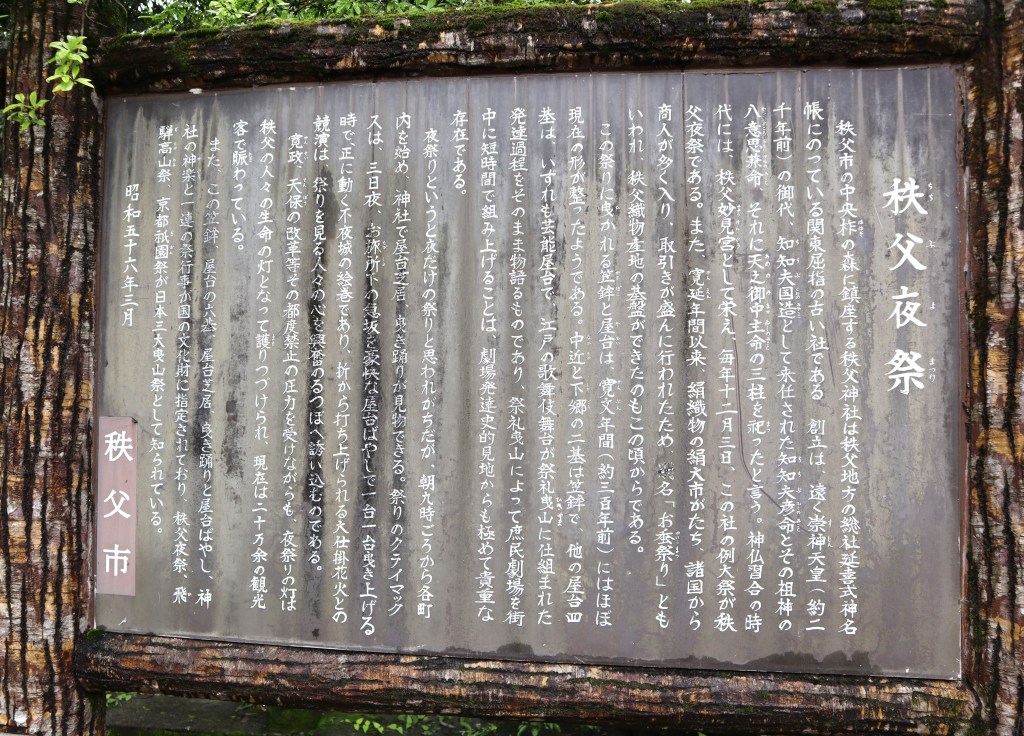 秩父夜祭
秩父市の中央柞の森に鎮座する秩父神社は秩父地方の総社延喜式神名
帳にのっている関東屈指の古い社である 創立は、遠く崇神天皇(約二
千年前)の御代、知々夫国造として永仕された知知夫彦命とその祖神の
八意思兼命、それに天之御中主命の三柱を祀ったと言う。神仏習合の時
代には、秩父妙見宮として栄え、毎年十二月三日、この社の例大祭が秩
父夜祭である。また、寛延年間以来、絹織物の絹大市がたち、諸国から
商人が多く入り、取引きが盛んに行われたため、名「お蚕祭り」とも
いわれ、秩父織物産地の基盤ができたのもこの頃からである。
この祭りに曳かれる笠鉾と屋台は、寛文年間(約三百年前)にはほぼ
現在の形が整ったようである。中近と下郷の二基は笠鉾で、他の屋台四
基は、いずれも芸能屋台で、江戸の歌舞伎舞台が祭礼曳山に仕組まれた
発達過程をそのまま物語るものであり、祭礼曳山によって庶民劇場を街
中に短時間で組み上げることは、劇場発達史的見地からも極めて貴重な
存在である。
夜祭りというと夜だけの祭りと思われがちだが、朝九時ごろから各町
内を始め、神社で屋台芝居、曳き踊りが見物できる。祭りのクライマック
スは、三日夜、お旅所下の急坂を豪快な屋台ばやしで一台一台曳き上げる
時で、正に動く不夜城の絵巻であり、折から打ち上げられる大仕掛花火との
競演は、祭りを見る人々の心を興奮のるつぼへ誘い込むのである。
寛政、天保の改革等その都度禁止の圧力を受けながらも、夜祭りの灯は
秩父の人々の生命の灯となって護りつづけられ、現在は二十万余の観光
客で賑わっている。
また、この笠鉾、屋台の六基、屋台芝居、曳き踊りと屋台ばやし、神
社の神楽と一連の祭行事が国の文化財に指定されており、秩父夜祭、飛
騨高山祭、京都祇園祭が日本三大曳山祭として知られている。
昭和五十六年三月
秩父市